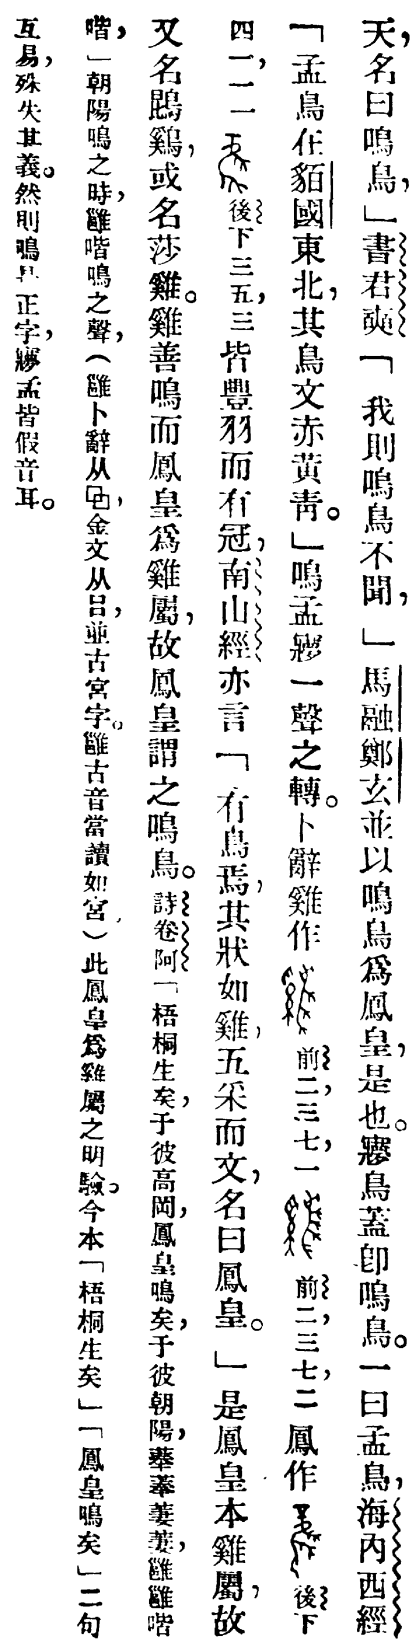 天，名曰鳴鳥，」書君奭「我則鳴鳥不聞，」馬融鄭玄並以鳴鳥爲鳳皇，是也。㝱鳥蓋卽鳴鳥。一曰孟鳥，海內西經
「孟鳥在貊國東北，其鳥文赤黃青。」鳴孟㝱一聲之轉。卜辭雞作前二，三七一前二，三七二鳳作後下
四一一後下三五，三皆豐羽而有冠，南山經亦言「有鳥焉，其狀如雞，五采而文，名曰鳳皇。」是鳳皇本雞屬，故
又名鶌雞，或名莎雞。雞善鳴而鳳皇爲雞屬，故鳳皇謂之鳴鳥。詩卷阿「梧桐生矣，于彼高岡，鳳皇鳴矣，于彼朝陽，菶菶萋萋，雝雝喈
喈，」朝陽鳴之時，雝喈鳴之聲，（雝卜辭从吅，金文从吕，並古宮字。雝古音當讀如宮）此鳳皇爲雞屬之明驗。今本「梧桐生矣」「鳳皇鳴矣」二句
互易，殊失其義。然則鳴是正字，㝱孟皆假音耳。